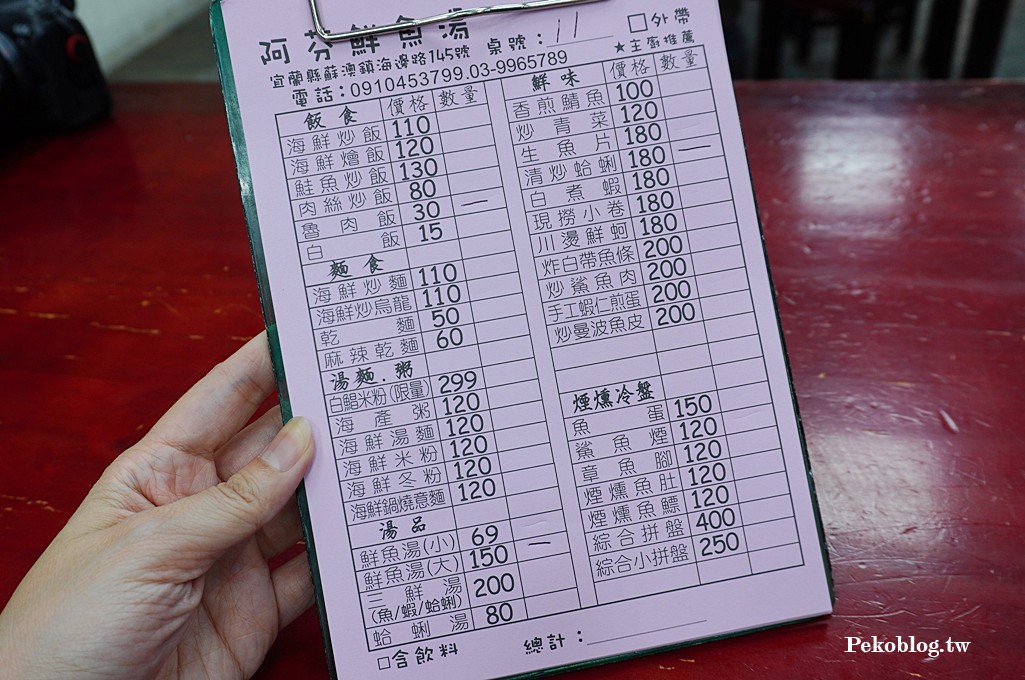 阿芬鮮魚湯
宜蘭縣蘇澳鎮海邊路145號 桌號：11
□外帶
電話：0910453799.03-9965789
★主廚推薦
飯食 價格 數量
海鮮炒飯 110
海鮮燴飯 120
鮭魚炒飯 130
肉絲炒飯 80
魯肉飯 30 一
白飯 15
麵食
海鮮炒麵 110
海鮮炒烏龍 110
乾麵 50
麻辣乾麵 60
湯麵.粥
白鯧米粉(限量) 299
海產粥 120
海鮮湯麵 120
海鮮米粉 120
海鮮冬粉 120
海鮮鍋燒意麵 120
湯品
鮮魚湯(小) 69
鮮魚湯(大) 150 一
三鮮湯 200
(魚/蝦/蛤蜊)
蛤蜊湯 80
鮮味 價格 數量
香煎鯖魚 100
炒青菜 120
生魚片 180
清炒蛤蜊 180 一
白煮蝦 180
現撈小卷 180
川燙鮮蚵 180
炸白帶魚條 200
炒鯊魚肉 200
手工蝦仁煎蛋 200
炒曼波魚皮 200
煙燻冷盤
魚蛋 150
鯊魚煙 120
章魚腳 120
煙燻魚肚 120
煙燻魚鰾 120
綜合拼盤 400
綜合小拼盤 250
□含飲料 總計：
Pekoblog.tw